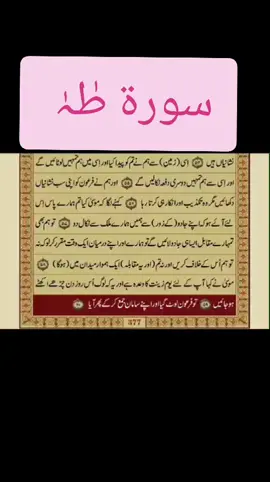 سورة طٰہٰ
نشانیاں ہیں ﴿۵۴﴾ اسی (زمین) سے ہم نے تم کو پیدا کیا اور اسی میں ہم تمہیں لوٹائیں گے
اور اسی سے ہم تمہیں دوسری دفعہ نکالیں گے ﴿۵۵﴾ اور ہم نے فرعون کو اپنی سب نشانیاں
دکھائیں مگر وہ تکذیب اور انکار ہی کرتا رہا ﴿۵۶﴾ کہنے لگا کہ موسیٰ کیا تم ہمارے پاس اس
لئے آئے ہو کہ اپنے جادو (کے زور) سے ہمیں ہمارے ملک سے نکال دو ﴿۵۷﴾ تو ہم بھی
تمہارے مقابل ایسا ہی جادو لائیں گے تو ہمارے اور اپنے درمیان ایک وقت مقرر کر لو کہ نہ
تو ہم اس کے خلاف کریں اور نہ تم (اور یہ مقابلہ) ایک ہموار میدان میں (ہوگا) ﴿۵۸﴾
موسیٰ نے کہا آپ کے لئے یوم زینت کا وعدہ ہے اور یہ کہ لوگ اس روز دن چڑھے اکٹھے
ہو جائیں ﴿۵۹﴾ تو فرعون لوٹ گیا اور اپنے سامان جمع کر کے پھر آیا ﴿۶۰﴾
377